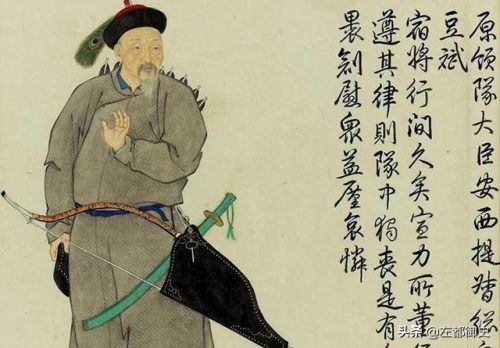 原領隊大臣安西提督總
豆斌
宿將行間久矣宣力所董
遵其律則隊中獨喪是有
裹創慰衆益厪哀憐
头条 @左都御史